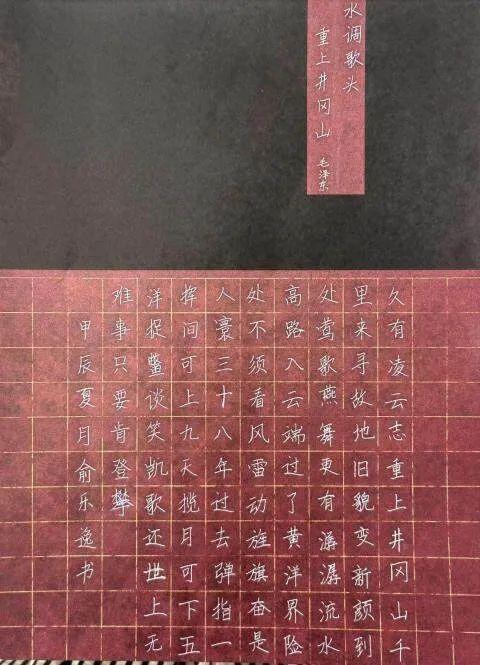 水调歌头
重上井冈山
毛泽东
久有凌云志重上井冈山千
里来寻故地旧貌变新颜到
处莺歌燕舞更有潺潺流水
高路入云端过了黄洋界险
处不须看风雷动旌旗奋是
人寰三十八年过去弹指一
挥间可上九天揽月可下五
洋捉鳖谈笑凯歌还世上无
难事只要肯登攀
甲辰夏月俞乐逸书